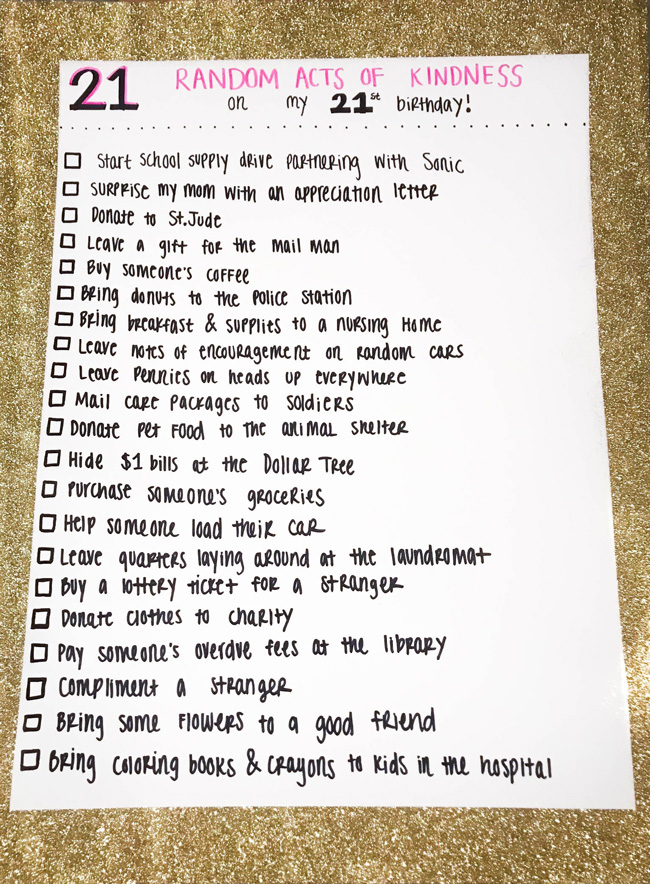 21 RANDOM ACTS OF KINDNESS
on my 21st birthday!
Start School Supply drive partnering with Sonic
Surprise my mom with an appreciation letter
Donate to St. Jude
Leave a gift for the mail man
Buy someone's coffee
Bring donuts to the police station
Bring breakfast & supplies to a nursing home
Leave notes of encouragement on random cars
Leave pennies on heads up everywhere
Mail care packages to soldiers
Donate pet food to the animal shelter
Hide $1 bills at the Dollar Tree
Purchase someone's groceries
Help someone load their car
Leave quarters laying around at the laundromat
Buy a lottery ticket for a stranger
Donate clothes to charity
Pay someone's overdue fees at the library
Compliment a stranger
Bring some flowers to a good friend
Bring coloring books & crayons to kids in the hospital